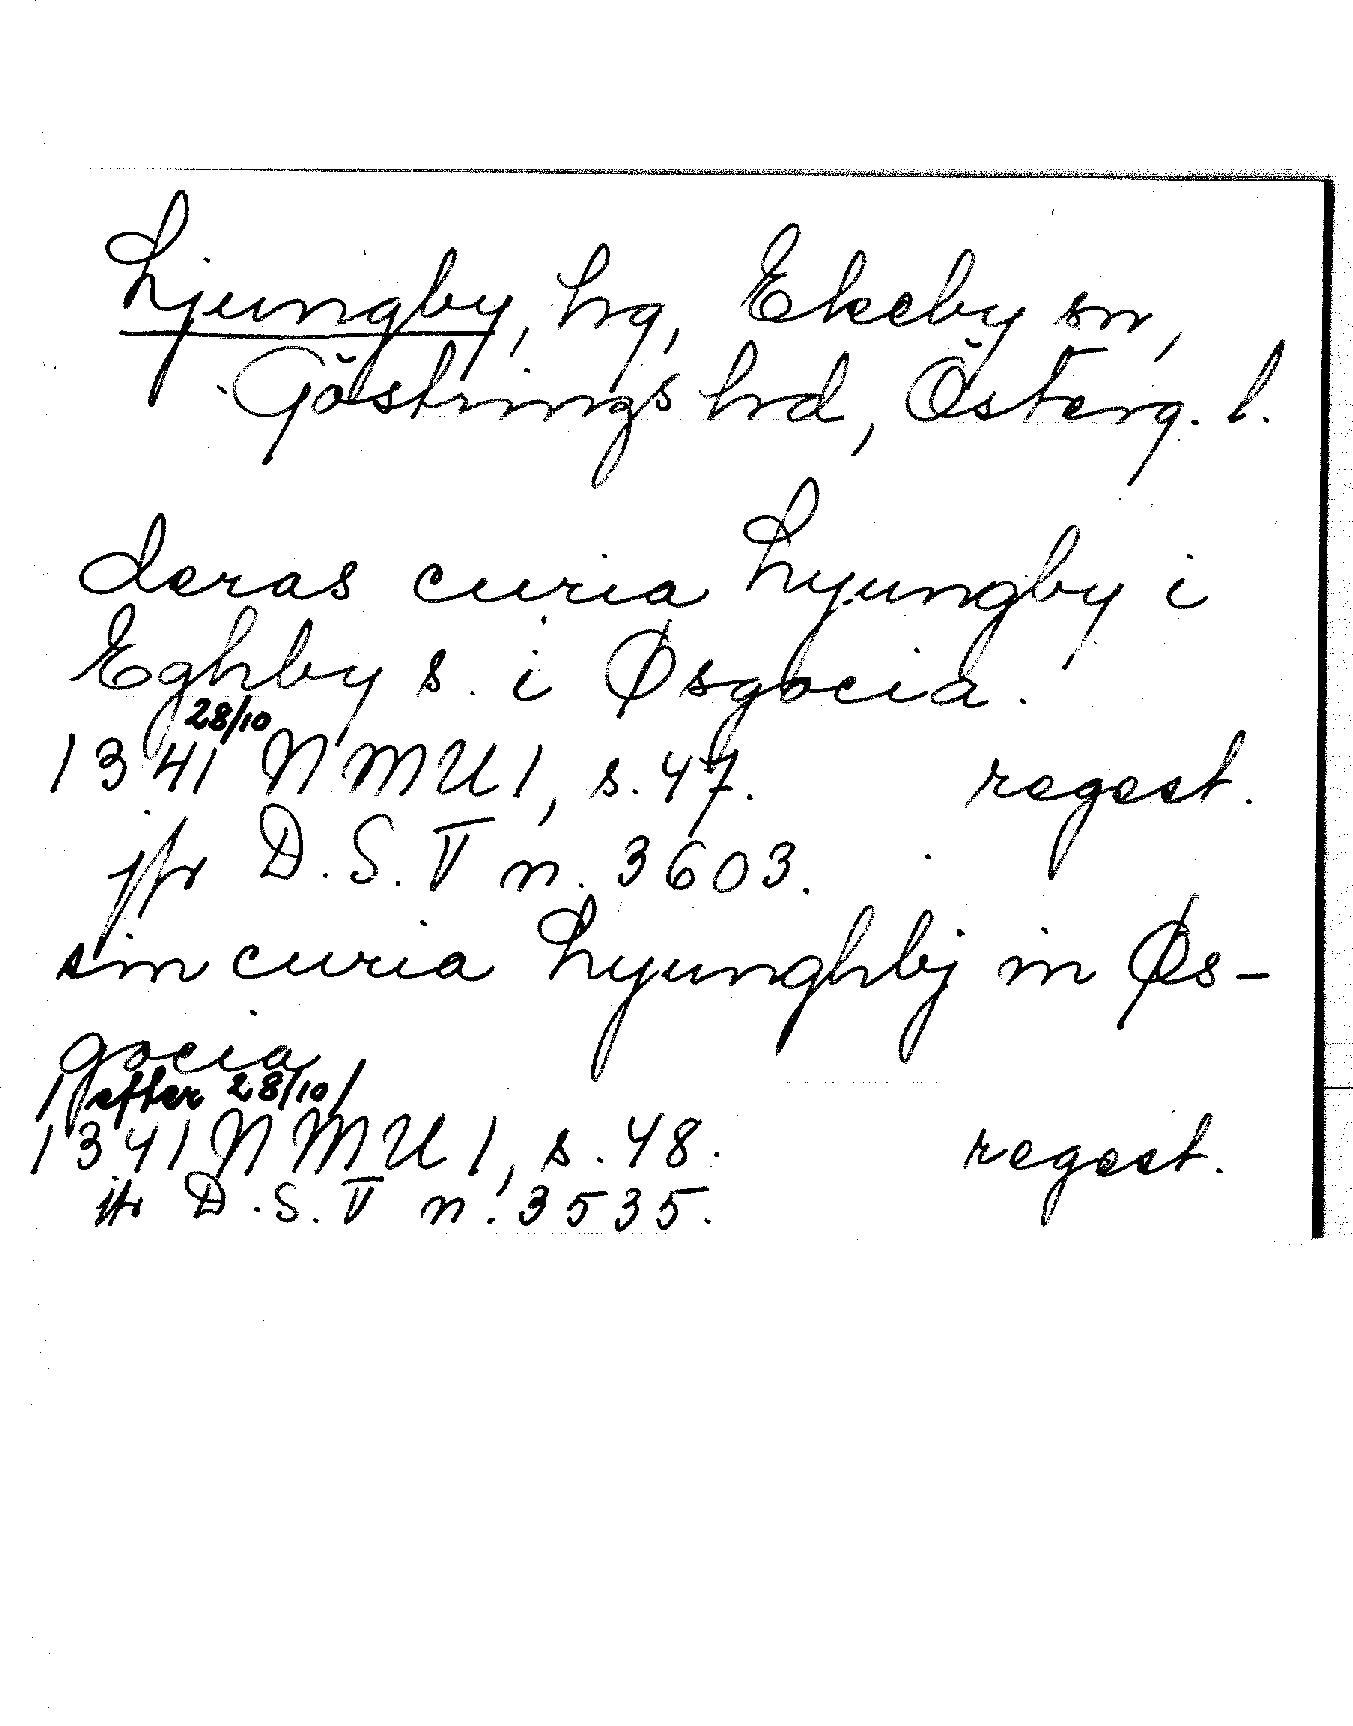 Ljungby, hg, Ekeby sn,
Göstrings hd, Österg. l.
deras curia Lyungby i
Eghby s. i Øsgocia.
28/10
1341 NMU 1, s. 47. regest.
jfr D.S. V n. 3603.
sin curia Lyunghbÿ in Øs-
gocia
/efter 28/10/
1341 NMU 1, s. 48. regest.
jfr D.S. V n. 3535.